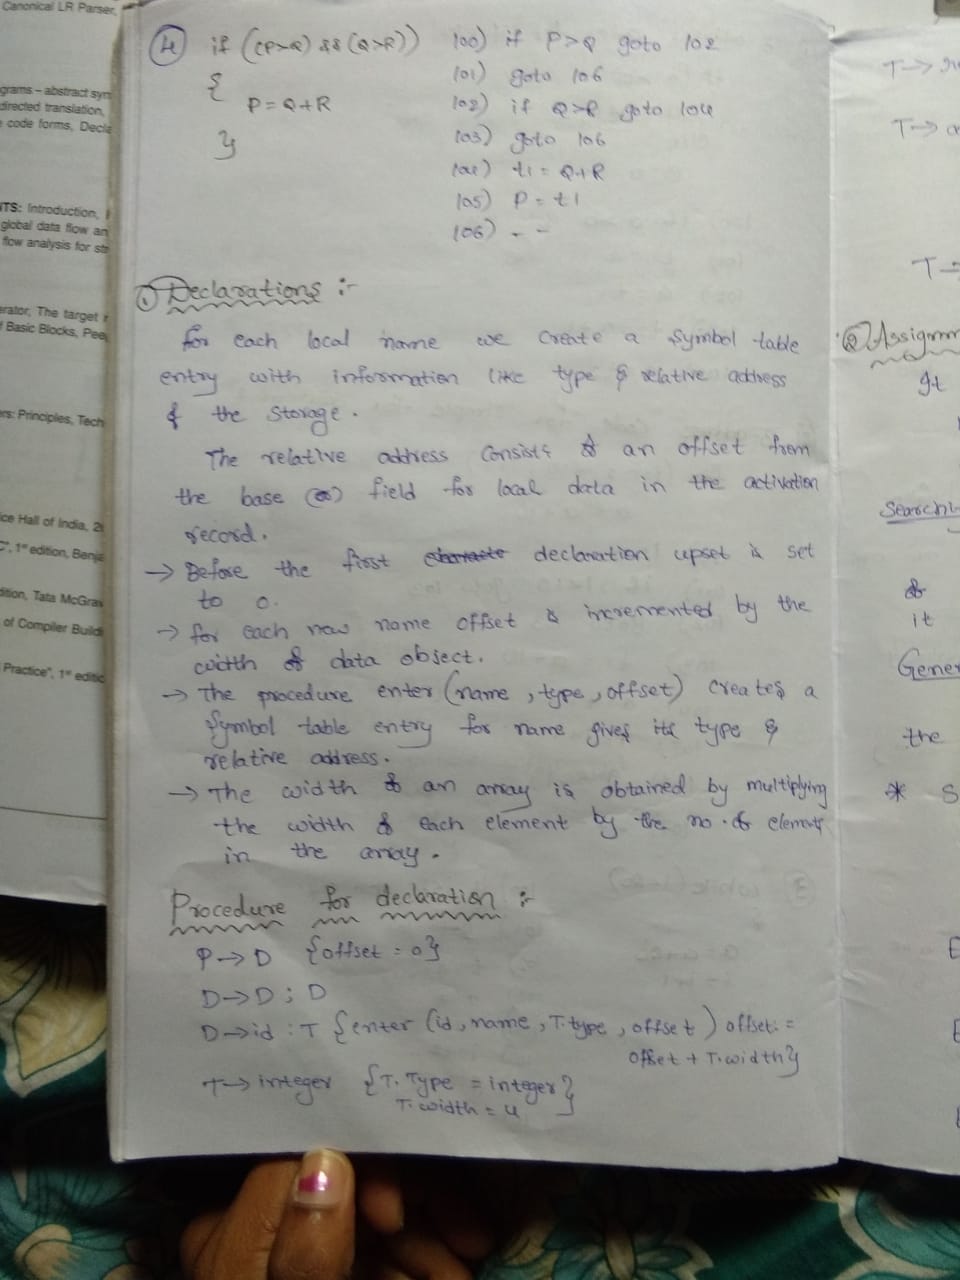 Canonical LR Parser,
grams – abstract syn
directed translation,
code forms, Decla
NTS: Introduction,
global data flow an
flow analysis for str
erator, The target
Basic Blocks, Pee
ers: Principles, Tech
ice Hall of India, 2
1st edition, Benja
dition, Tata McGraw
of Compiler Buildi
Practice", 1st editio
④ if ((P>Q) && (Q>R))
{
P=Q+R
}
100) if P>Q goto 102
101) goto 106
102) if Q>R goto 104
103) goto 106
104) t1 = Q+R
105) P = t1
106) - -
① Declarations :-
for each local name we create a symbol table
entry with information like type & relative address
& the storage.
The relative address consists of an offset from
the base (or) field for local data in the activation
record.
→ Before the first declaration upset is set
to 0.
→ for each new name offset is incremented by the
width of data object.
→ The procedure enter (name, type, offset) creates a
symbol table entry for name gives its type &
relative address.
→ The width of an array is obtained by multiplying
the width of each element by the no. of elements
in the array.
Procedure for declaration :-
P → D {offset = 0}
D → D ; D
D → id : T {enter (id, name, T.type, offset) offset: =
offset + T.width}
T → integer {T. Type = integer}
T. width = 4
T →
T →
T →
② Assignm
It
Searchi
of
it
Gener
the
* S
E